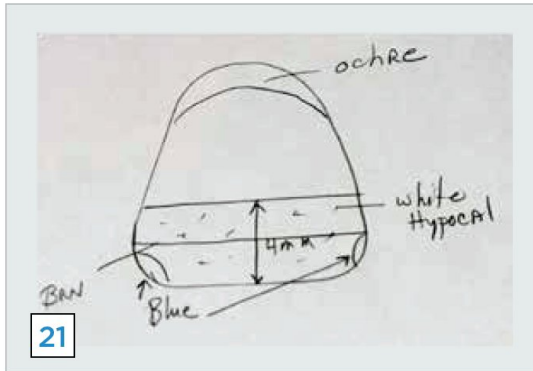 ochRe
white
Hypocal
4mm
BRN
Blue
21